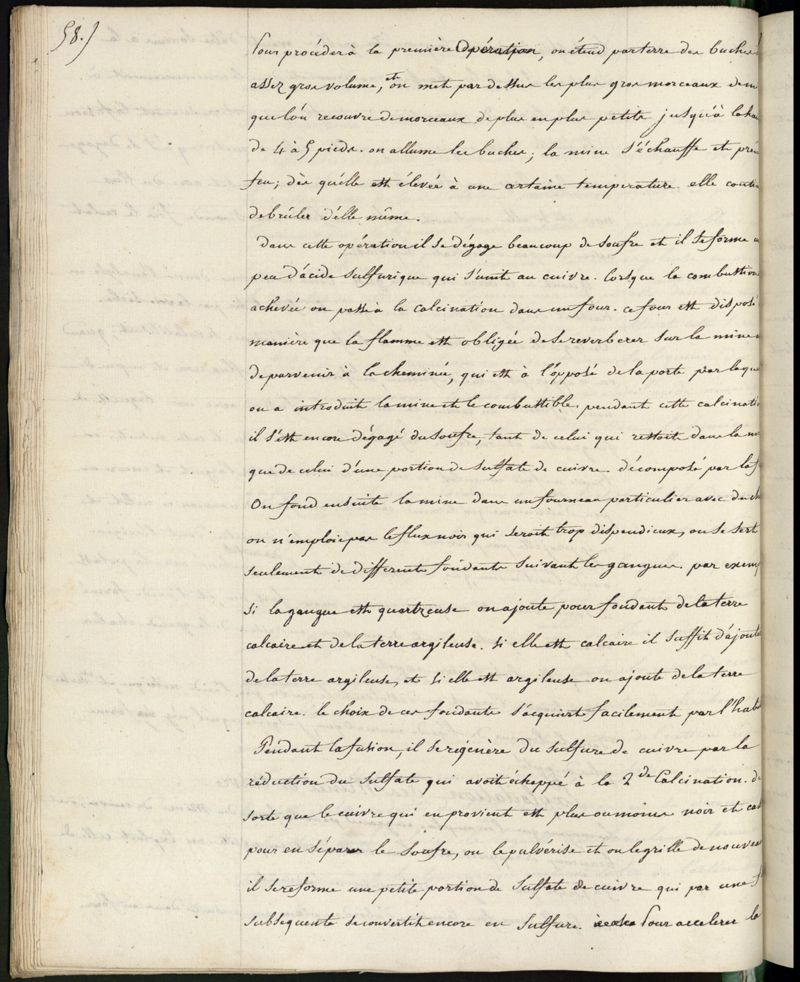 58.)
Pour procéder à la première Opération, on étend par terre des buches
assez gros volume, et on met par dessus les plus gros morceaux de m
que l'on recouvre de morceaux de plus en plus petits jusqu'à la hau
de 4 à 5 pieds. on allume les buches; la mine s'échauffe et pren
feu; dès qu'elle est élevée à une certaine temperature. elle conti
de brûler d'elle même.
Dans cette opération il se dégage beaucoup de soufre et il se forme u
peu d'acide sulfurique qui s'unit au cuivre. lorsque la combustion
achevée on passe à la calcination dans un four. ce four est disposé
manière que la flamme est obligée de se reverberer sur la mine
de parvenir à la cheminée, qui est à l'opposé de la porte par laque
on a introduit la mine et le combustible. pendant cette calcinati
il s'est encore dégagé du soufre, tant de celui qui restoit dans la m
que de celui d'une portion de sulfate de cuivre décomposé par le f
On fond ensuite la mine dans un fourneau particulier avec du ch
on n'emploie pas le flux noir qui seroit trop dispendieux, on se sert
seulement de differents fondants suivant les gangues. par exemp
Si la gangue est quartzeuse on ajoute pour fondant de la terre
calcaire et de la terre argileuse. si elle est calcaire il suffit d'ajoute
de la terre argileuse, et si elle est argileuse on ajoute de la terre
calcaire. le choix de ces fondants s'acquiert facilement par l'habi
Pendant la fusion, il se régénère du sulfure de cuivre par la
réduction du sulfate qui avoit échappé à la 2de Calcination. de
sorte que le cuivre qui en provient est plus ou moins noir et cas
pour en séparer le soufre, on le pulvérise et on le grille de nouveau
il se reforme une petite portion de sulfate de cuivre qui par une f
subsequente se convertit encore en sulfure. Pour accelerer la